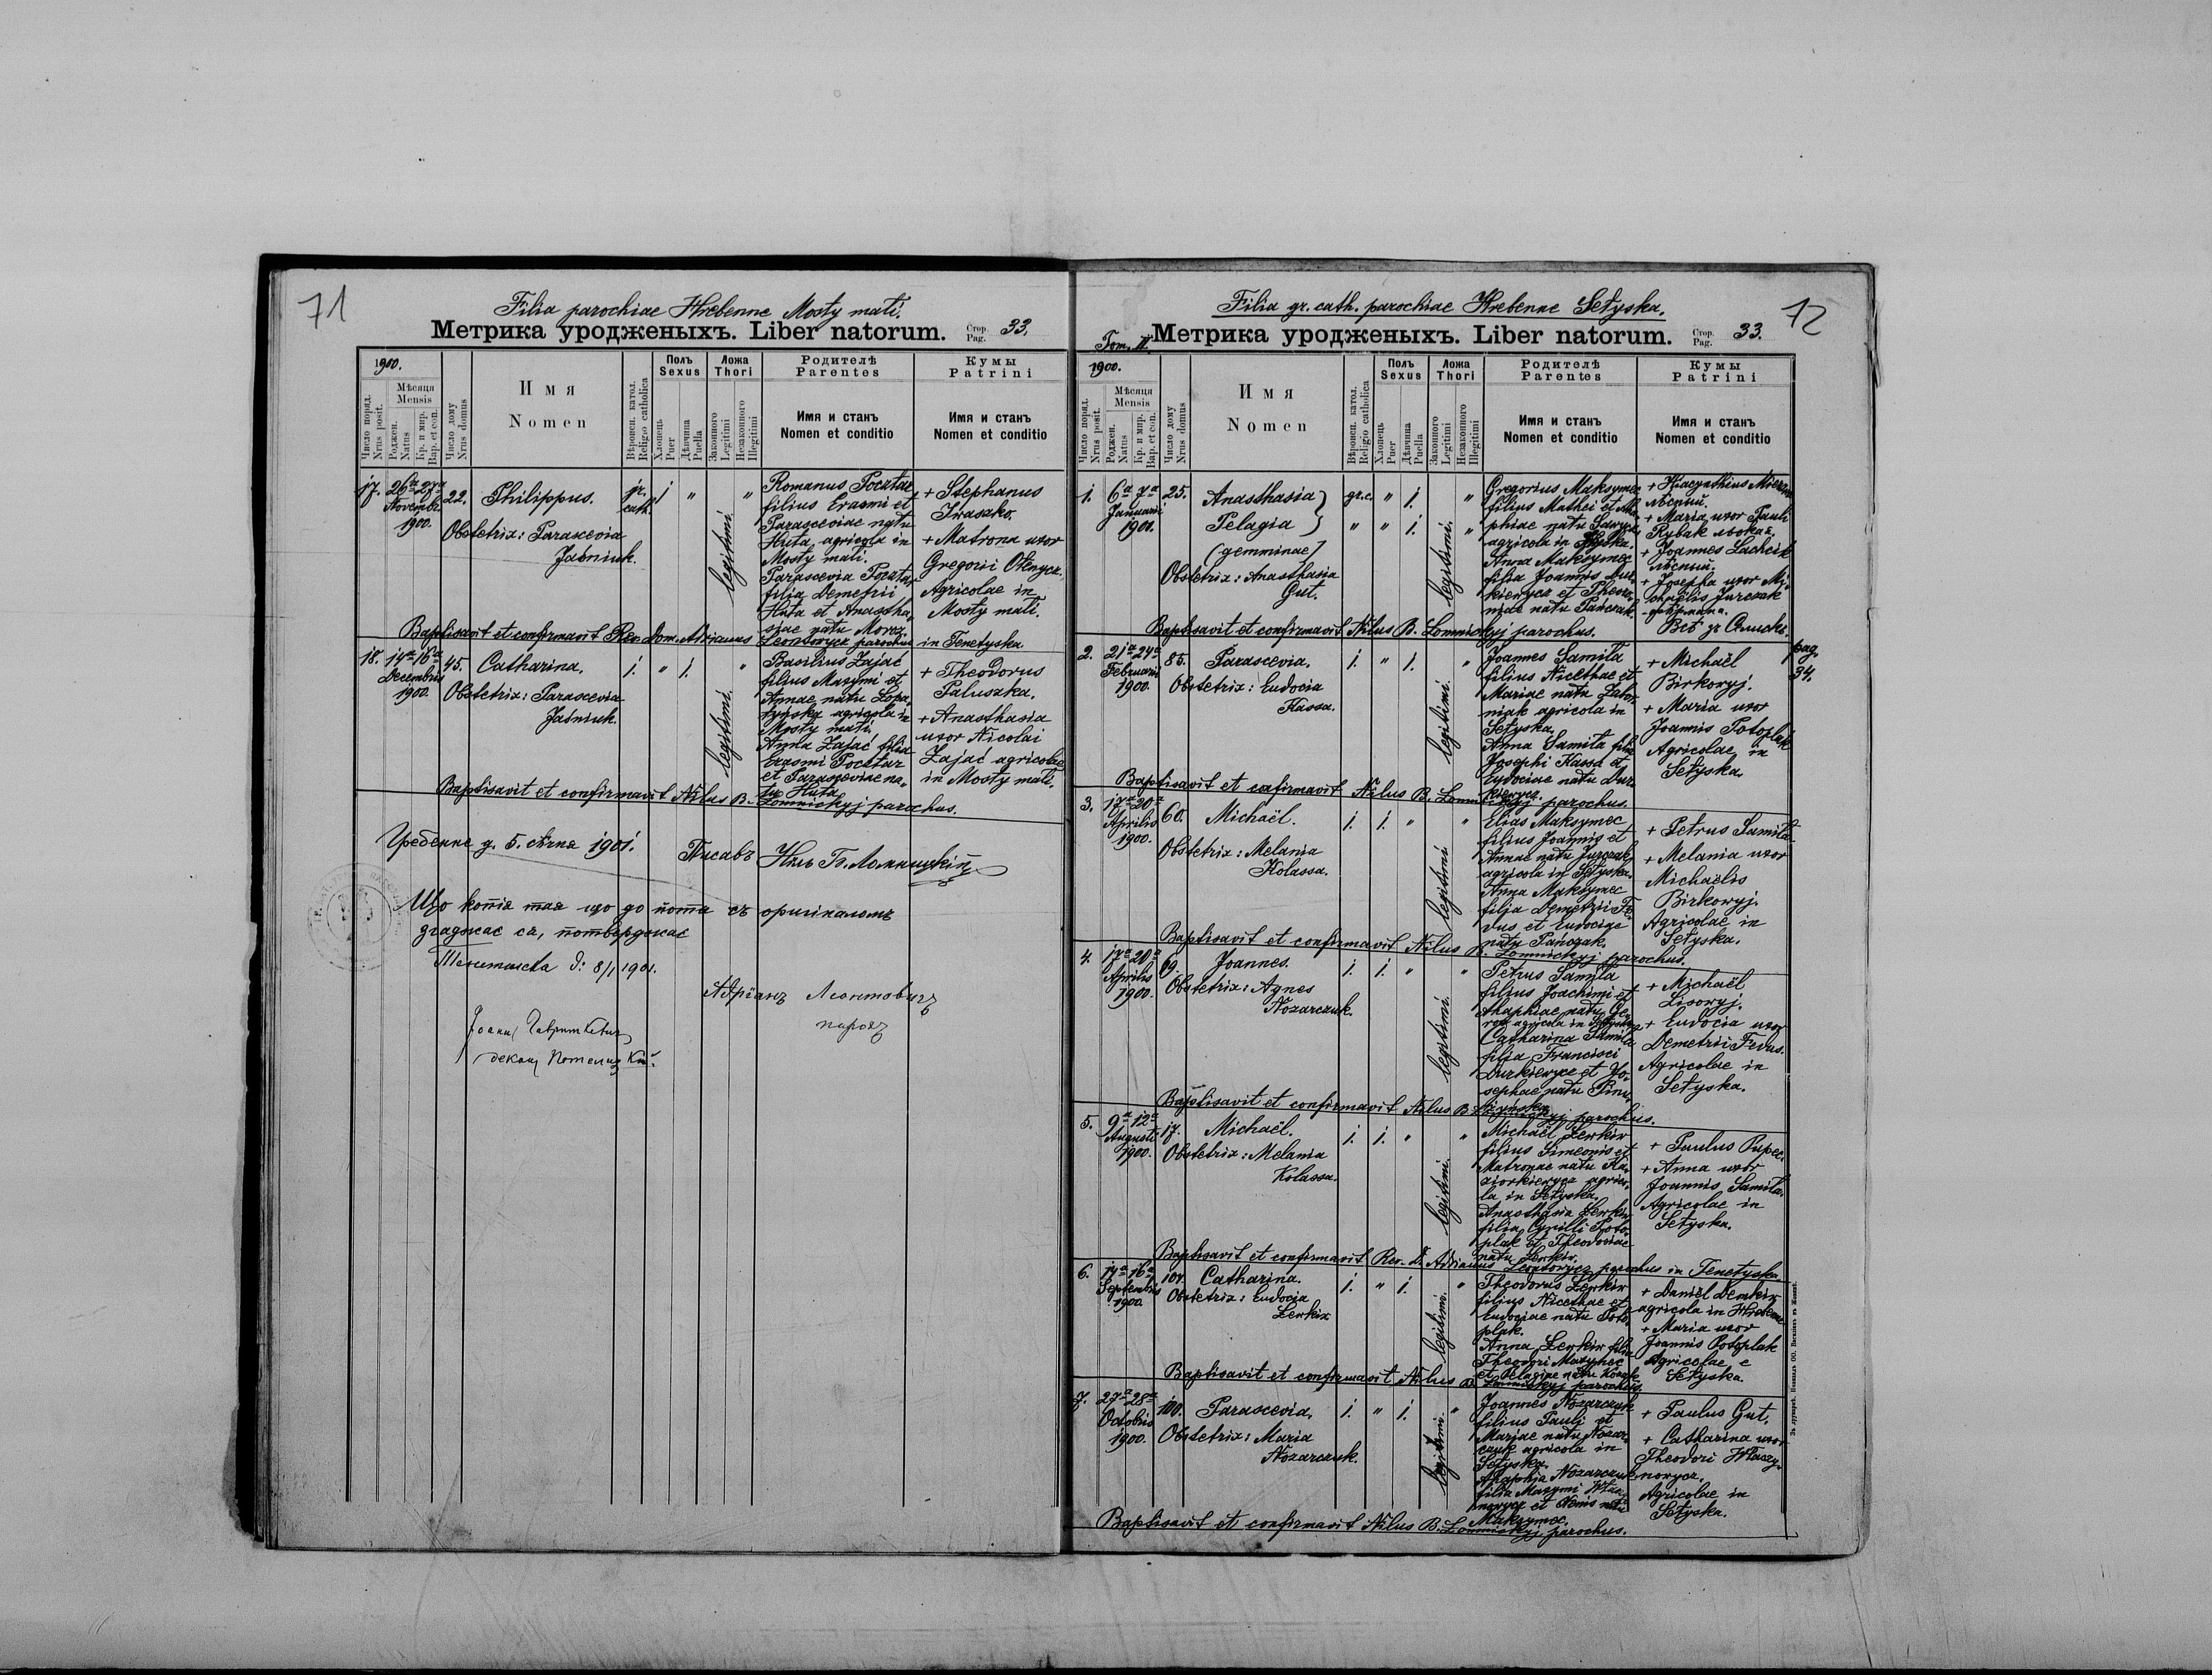 71
Filia parochiae Hrebenne Mosty mati.
Метрика уродженыхъ. Liber natorum.
Стор. Pag. 33.
1900.
Число поряд. Nrus posit.
Мѣсяця Mensis
Роджен. Natus
Кр. и мир. Bap. et con.
Число дому Nrus domus
Имя
Nomen
Вѣроисп. катол. Religio catholica
Полъ Sexus
Хлопець Puer
Дѣвчина Puella
Ложа Thori
Законного Legitimi
Незаконного Illegitimi
Родителѣ
Parentes
Имя и станъ
Nomen et conditio
Кумы
Patrini
Имя и станъ
Nomen et conditio
17. 26a 27a Novembr. 1900. 22. Philippus. gr. cath. 1 " legitimi "
Obstetrix: Parascevia
Jaśniuk.
Romanus Pocztar
filius Erasmi et
Parasceviae natu
Huta, agricola in
Mosty mati.
Parascevia Pocztar
filia Demetrii
Huta et Anastha
siae natu Moroz.
+ Stephanus
Iwaszko.
+ Matrona uxor
Gregorii Ołenycz.
Agricolae in
Mosty mati.
Baptisavit et confirmavit Rev. Dom. Adrianus Leontowycz parochus in Tenetyska
18. 14a 16a Decembris 1900. 45. Catharina. j. " j. legitimi "
Obstetrix: Parascevia
Jaśniuk.
Basilius Zając
filius Maxymi et
Annae natu Łopa
tynska agricola in
Mosty mati.
Anna Zając filia
Erasmi Pocztar
et Parasceviae na
tu Huta
+ Theodorus
Paluszka,
+ Anasthasia
uxor Nicolai
Zając agricolae
in Mosty mati.
Baptisavit et confirmavit Nilus B. Łomnickyj parochus.
Гребенне д. 5. сѣчня 1901. Писавъ Нилъ Б. Ломницкій
Що копія тая що до йота съ оригиналомъ
згаджає ся, потверджає
Тенетиска д: 8/1 1901.
Адріанъ Леонтовичъ
парохъ
12
Filia gr. cath. parochiae Hrebenne Sełyska.
Tom. II.
Метрика уродженыхъ. Liber natorum.
Стор. Pag. 33.
1900.
Число поряд. Nrus posit.
Мѣсяця Mensis
Роджен. Natus
Кр. и мир. Bap. et con.
Число дому Nrus domus
Имя
Nomen
Вѣроисп. катол. Religio catholica
Полъ Sexus
Хлопець Puer
Дѣвчина Puella
Ложа Thori
Законного Legitimi
Незаконного Illegitimi
Родителѣ
Parentes
Имя и станъ
Nomen et conditio
Кумы
Patrini
Имя и станъ
Nomen et conditio
1. 6a 7a Januarii 1900. 25. Anasthasia gr.c. " j. legitimi. "
Pelagia " " j. "
(gemminae)
Obstetrix: Anasthasia
Gut.
Gregorius Maksymec
filius Mathei et Aha
phiae natu
agricola in Sełyska.
Anna Maksymec
filia Joannis Dur
kiewycz et Theodo
niae natu Pańczak.
+ Hiacynthius
+ Maria uxor Pauli
Rybak
+ Joannes Lachcik
+ Josepha uxor Mi
chaëlis Jurczak
Baptisavit et confirmavit Nilus B. Łomnickyj parochus.
2. 21a 24a Februarii 1900. 85. Parascevia. j. " j. legitimi. "
Obstetrix: Eudocia
Kassa.
Joannes Samiła
filius Nicethae et
Mariae natu
niak agricola in
Sełyska.
Anna Samiła filia
Josephi Kassa et
Eudociae natu Dur
kiewycz.
+ Michaël
Birkowyj.
+ Maria uxor
Joannis Potoplak
Agricolae in
Sełyska.
pag. 34.
Baptisavit et confirmavit Nilus B. Łomnickyj parochus.
3. 17a 20a Aprilis 1900. 60. Michaël. j. j. " legitimi "
Obstetrix: Melania
Kolassa.
Elias Maksymec
filius Joannis et
Annae natu Jurczak
agricola in Sełyska.
Anna Maksymec
filia Demetrii Fe
dus et Eudociae
natu Pańczak.
+ Petrus Samiła
+ Melania uxor
Michaëlis
Birkowyj.
Agricolae in
Sełyska.
Baptisavit et confirmavit Nilus B. Łomnickyj parochus.
4. 17a 20a Aprilis 1900. 69. Joannes. j. j. " legitimi. "
Obstetrix: Agnes
Nozarczuk.
Petrus Samiła
filius Joachimi et
Ahaphiae natu
agricola in Sełyska
Catharina Samiła
filia Francisci
Durkiewycz et Jo
sephae natu
+ Michaël
Lisowyj.
+ Eudocia uxor
Demetrii Fedus.
Agricolae in
Sełyska.
Baptisavit et confirmavit Nilus B. Łomnickyj parochus.
5. 9a 12a Augusti 1900. 17. Michaël. j. j. " legitimi. "
Obstetrix: Melania
Kolassa.
Michaël Łenkiw
filius Simeonis et
Matronae natu Ka
ziorkiewycz agrico
la in Sełyska.
Anasthasia Łenkiw
filia Cyrilli Poto
plak et Theodosiae
natu Łenkiw.
+ Paulus Pupec.
+ Anna uxor
Joannis Samiła.
Agricolae in
Sełyska.
Baptisavit et confirmavit Rev. D. Adrianus Leontowycz parochus in Tenetyska
6. 14a 16a Septembris 1900. 101. Catharina. j. " j. legitimi. "
Obstetrix: Eudocia
Łenkiw
Theodorus Łenkiw
filius Nicethae et
Eudociae natu Poto
plak.
Anna Łenkiw filia
Theodori Maxymec
et Pelagiae natu
+ Daniël Demkiw
agricola in Hrebenne
+ Maria uxor
Joannis Potoplak
Agricolae e
Sełyska.
Baptisavit et confirmavit Nilus B. Łomnickyj parochus.
7. 27a 28a Octobris 1900. 100. Parascevia. j. " j. legitimi. "
Obstetrix: Maria
Nozarczuk.
Joannes Nozarczuk
filius Pauli et
Mariae natu Nozar
czuk agricola in
Sełyska.
Ahaphia Nozarczuk
filia Maxymi
nowycz et natu
Maksymec.
+ Paulus Gut.
+ Catharina uxor
Theodori Właszy
nowycz.
Agricolae in
Sełyska.
Baptisavit et confirmavit Nilus B. Łomnickyj parochus.